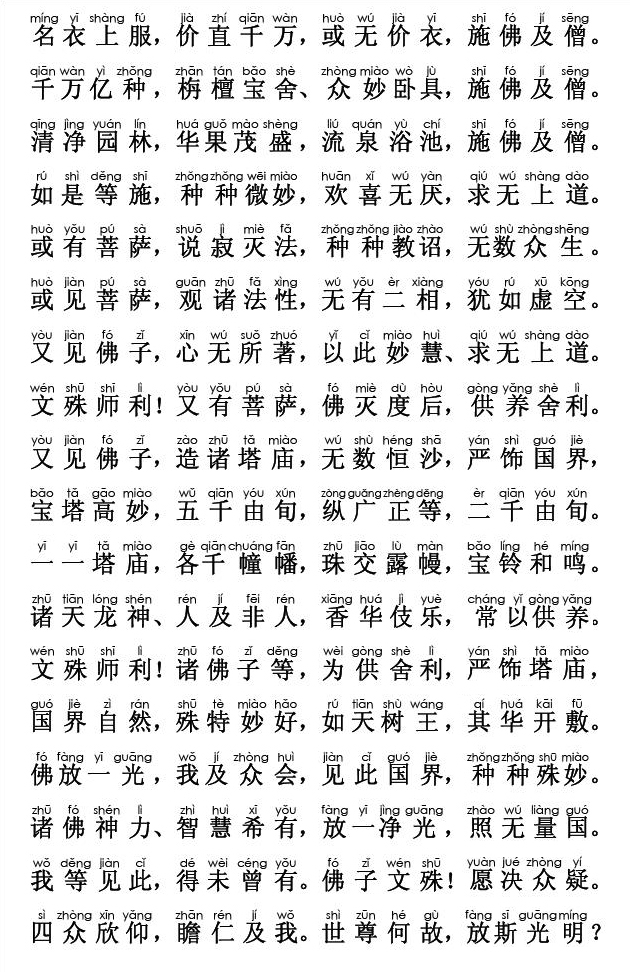 míng yī shàng fú jià zhí qiān wàn huò wú jià yī shī fó jí sēng
名衣上服，价直千万，或无价衣，施佛及僧。
qiān wàn yì zhǒng zhān tán bǎo shè zhòng miào wò jù shī fó jí sēng
千万亿种，栴檀宝舍、众妙卧具，施佛及僧。
qīng jìng yuán lín huá guǒ mào shèng liú quán yù chí shī fó jí sēng
清净园林，华果茂盛，流泉浴池，施佛及僧。
rú shì děng shī zhǒng zhǒng wēi miào huān xǐ wú yàn qiú wú shàng dào
如是等施，种种微妙，欢喜无厌，求无上道。
huò yǒu pú sà shuō jì miè fǎ zhǒng zhǒng jiào zhào wú shù zhòng shēng
或有菩萨，说寂灭法，种种教诏，无数众生。
huò jiàn pú sà guān zhū fǎ xìng wú yǒu èr xiàng yóu rú xū kōng
或见菩萨，观诸法性，无有二相，犹如虚空。
yòu jiàn fó zǐ xīn wú suǒ zhuó yǐ cǐ miào huì qiú wú shàng dào
又见佛子，心无所著，以此妙慧、求无上道。
wén shū shī lì yòu yǒu pú sà fó miè dù hòu gòng yǎng shè lì
文殊师利！又有菩萨，佛灭度后，供养舍利。
yòu jiàn fó zǐ zào zhū tǎ miào wú shù héng shā yán shì guó jiè
又见佛子，造诸塔庙，无数恒沙，严饰国界，
bǎo tǎ gāo miào wǔ qiān yóu xún zòng guǎng zhèng děng èr qiān yóu xún
宝塔高妙，五千由旬，纵广正等，二千由旬。
yī yī tǎ miào gè qiān chuáng fān zhū jiāo lù màn bǎo líng hé míng
一一塔庙，各千幢幡，珠交露幔，宝铃和鸣。
zhū tiān lóng shén rén jí fēi rén xiāng huá jì yuè cháng yǐ gòng yǎng
诸天龙神、人及非人，香华伎乐，常以供养。
wén shū shī lì zhū fó zǐ děng wèi gòng shè lì yán shì tǎ miào
文殊师利！诸佛子等，为供舍利，严饰塔庙，
guó jiè zì rán shū tè miào hǎo rú tiān shù wáng qí huá kāi fū
国界自然，殊特妙好，如天树王，其华开敷。
fó fàng yī guāng wǒ jí zhòng huì jiàn cǐ guó jiè zhǒng zhǒng shū miào
佛放一光，我及众会，见此国界，种种殊妙。
zhū fó shén lì zhì huì xī yǒu fàng yī jìng guāng zhào wú liàng guó
诸佛神力、智慧希有，放一净光，照无量国。
wǒ děng jiàn cǐ dé wèi céng yǒu fó zǐ wén shū yuàn jué zhòng yí
我等见此，得未曾有。佛子文殊！愿决众疑。
sì zhòng xīn yǎng zhān rén jí wǒ shì zūn hé gù fàng sī guāng míng
四众欣仰，瞻仁及我。世尊何故，放斯光明？